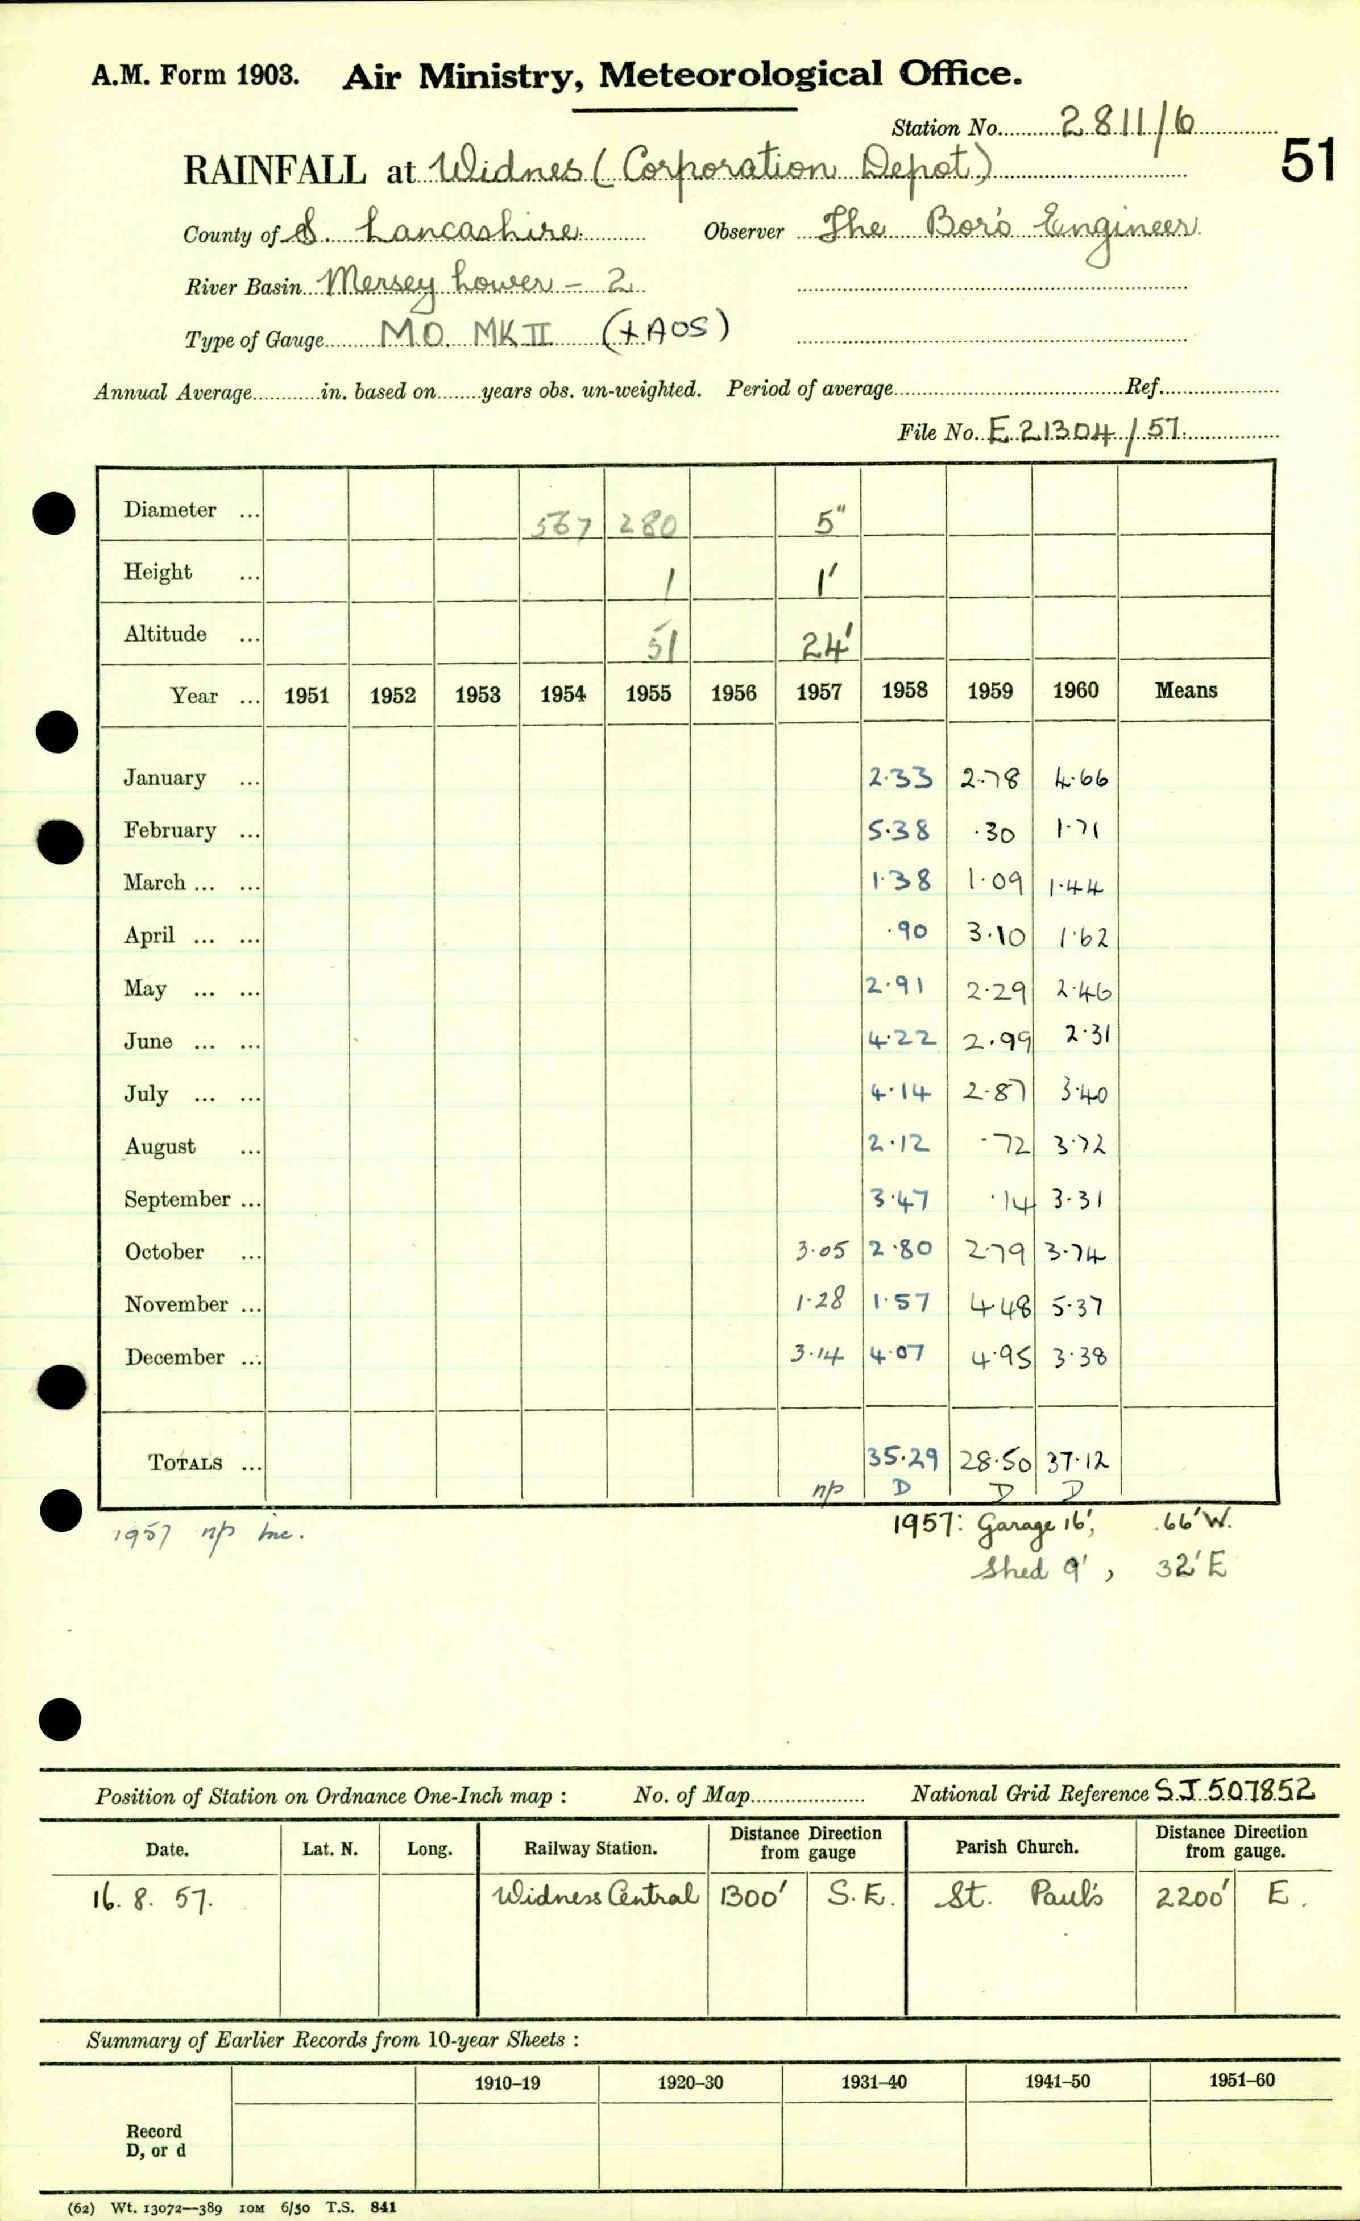 A.M. Form 1903. Air Ministry, Meteorological Office.
Station No. 2811/6
51
RAINFALL at Widnes (Corporation Depot)
County of S. Lancashire. Observer The Boro' Engineer
River Basin Mersey Lower - 2
Type of Gauge M.O. MK II (+AOS)
Annual Average............in. based on........years obs. un-weighted. Period of average............Ref............
File No. E 21304/57.
Diameter ... 567 280 5"
Height ... 1 1'
Altitude ... 51 24'
Year ... 1951 1952 1953 1954 1955 1956 1957 1958 1959 1960 Means
January ... 2.33 2.78 4.66
February ... 5.38 .30 1.71
March ... ... 1.38 1.09 1.44
April ... ... .90 3.10 1.62
May ... ... 2.91 2.29 2.46
June ... ... 4.22 2.99 2.31
July ... ... 4.14 2.87 3.40
August ... 2.12 .72 3.72
September ... 3.47 .14 3.31
October ... 3.05 2.80 2.79 3.74
November ... 1.28 1.57 4.48 5.37
December ... 3.14 4.07 4.95 3.38
TOTALS ... 35.29 28.50 37.12
np D D D
1957 np inc. 1957: Garage 16', 66'W.
Shed 9', 32'E
Position of Station on Ordnance One-Inch map : No. of Map............ National Grid Reference SJ 507852
Date. Lat. N. Long. Railway Station. Distance from Direction gauge Parish Church. Distance from Direction gauge.
16. 8. 57. Widness Central 1300' S.E. St. Paul's 2200' E.
Summary of Earlier Records from 10-year Sheets :
1910–19 1920–30 1931–40 1941–50 1951–60
Record
D, or d
(62) Wt. 13072—389 10M 6/50 T.S. 841